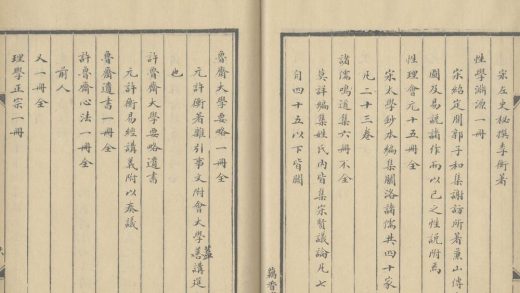 宋左史秘撰李衡著
性學淵源一冊
宋紹定間郭子和集謝訪所著兼山傳
圖及易說諸作而以已之性說附焉
性理會元十五冊全
宋太學鈔本編集關洛諸儒共四十家
凡二十三卷
諸儒鳴道集六冊不全
莫詳編集姓氏內皆集宗賢議論凡七
自四十五以下皆闕
藕香
魯齋大學要略一冊全
元許衡著雜引事文附會大學蓋講選
也
許魯齋大學要略遺書
元許衡易經講義附以奏議
魯齋遺書一冊全
許魯齋心法一冊全
前人
又一冊全
理學正宗一冊